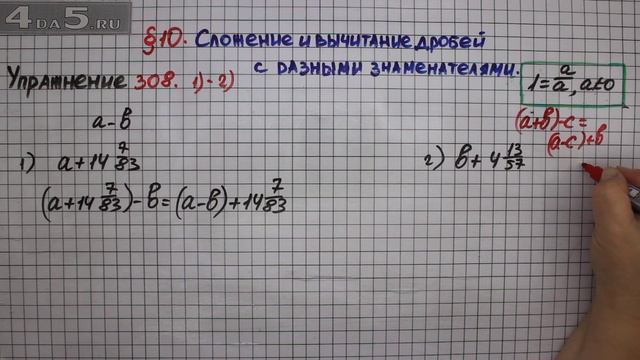 4DA5.RU
§10. Сложение и вычитание дробей
с разными знаменателями.
Упражнение 308. 1)-2)
1=a/a, a≠0
(a+b)-c=
(a-c)+b
a-b
1) a+14 7/83
2) b+4 13/57
(a+14 7/83)-b=(a-b)+14 7/83